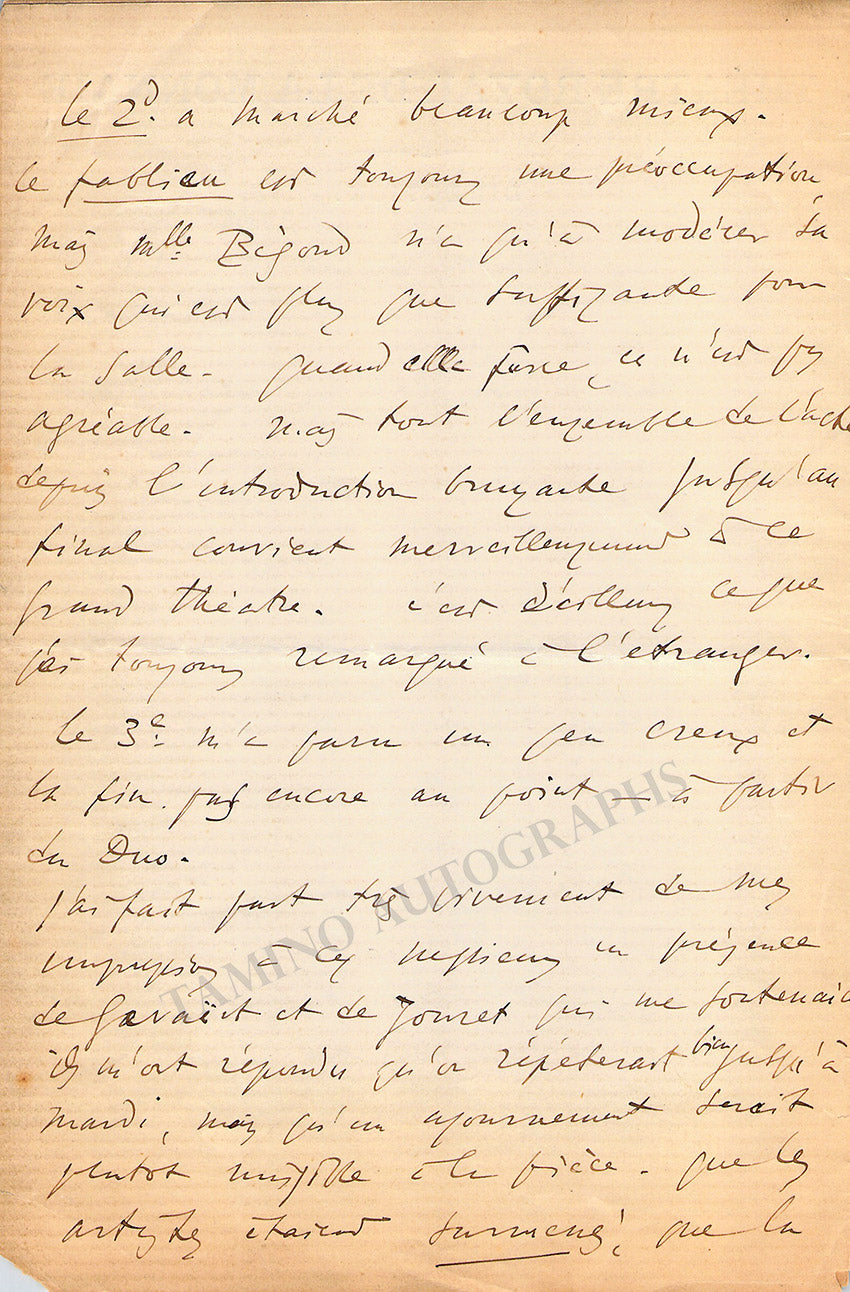 le 2d. a marché beaucoup mieux.
le fabliau est toujours une préoccupation,
mais Mlle Bégond n'a qu'à modérer sa
voix qui est plus que suffisante pour
la salle. quand elle force, ce n'est pas
agréable. mais tout l'ensemble de l'acte
depuis l'introduction bruyante jusqu'au
final convient merveilleusement à ce
grand théâtre. c'est d'ailleurs ce que
j'ai toujours remarqué à l'étranger.
le 3e. m'a paru un peu creux et
la fin pas encore au point — à partir
du Duo.
j'ai fait part très vivement de mes
impressions à ces messieurs en présence
de Gevaërt et de Jouret qui me soutenait
ils m'ont répondu qu'on répéterait bien jusqu'à
mardi, mais qu'un ajournement serait
plutôt nuisible à la pièce. que les
artistes étaient surmenés, que la
TAMINO AUTOGRAPHS